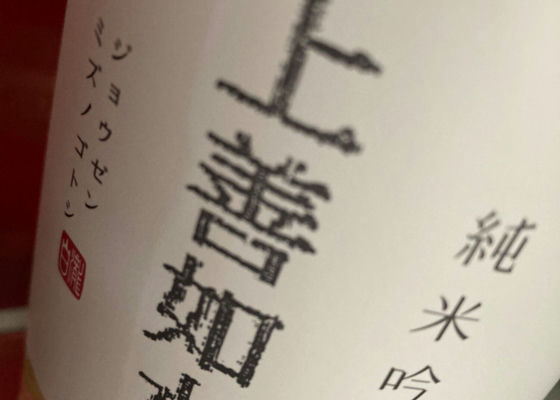 純米吟
上善如
ジョウゼン
ミズノゴトシ
白瀧